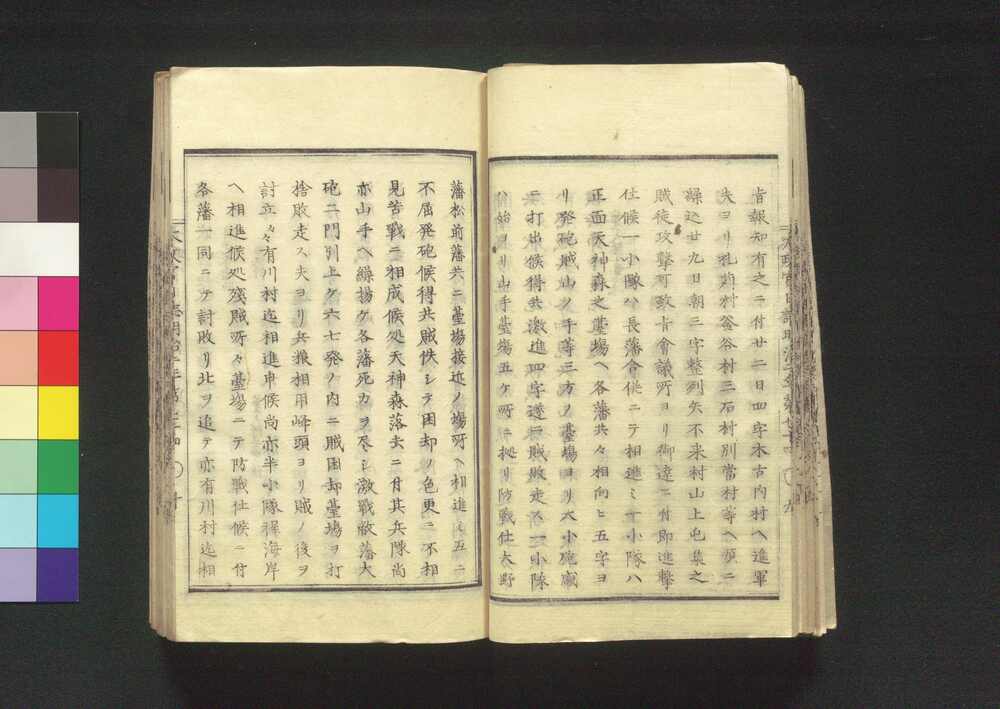 旨報知有之ニ付廿二日四字木古内村ヘ進軍
夫ヨリ札苅村釜谷村三石村別當村等ヘ須ニ
繰込廿九日朝三字整列矢不来村山上屯集之
賊徒攻撃可致旨會議所ヨリ御達ニ付即進撃
仕候一小隊ハ長藩合併ニテ相進ミ一小隊ハ
正面天神森之臺場ヘ各藩共々相向ヒ五字ヨ
リ発砲賊山ノ手等三方ノ臺場ヨリ大小砲厳
ニ打出候得共激進四字遂ニ賊敗走又一小隊
始ヨリ山手臺場五ケ所ニ拠リ防戦仕大野
藩松前藩共ニ臺場接近ノ場所ヘ相進ミ五ニ
不屈発砲候得共賊怯シテ困却ノ色更ニ不相
見苦戦ニ相成候処天神森落去ニ付其兵隊尚
亦山手ヘ繰揚ケ各藩死力ヲ尽シ激戦敝藩大
砲二門引上ケ六七発ノ内ニ賊困却臺場ヲ打
捨敗走ス夫ヨリ兵粮相用峰頭ヨリ賊ノ後ヲ
討立々々有川村迄相進申候尚亦半小隊程海岸
ヘ相進候処残賊所々臺場ニテ防戦仕候ニ付
各藩一同ニテ討敗リ北ヲ追テ亦有川村迄相